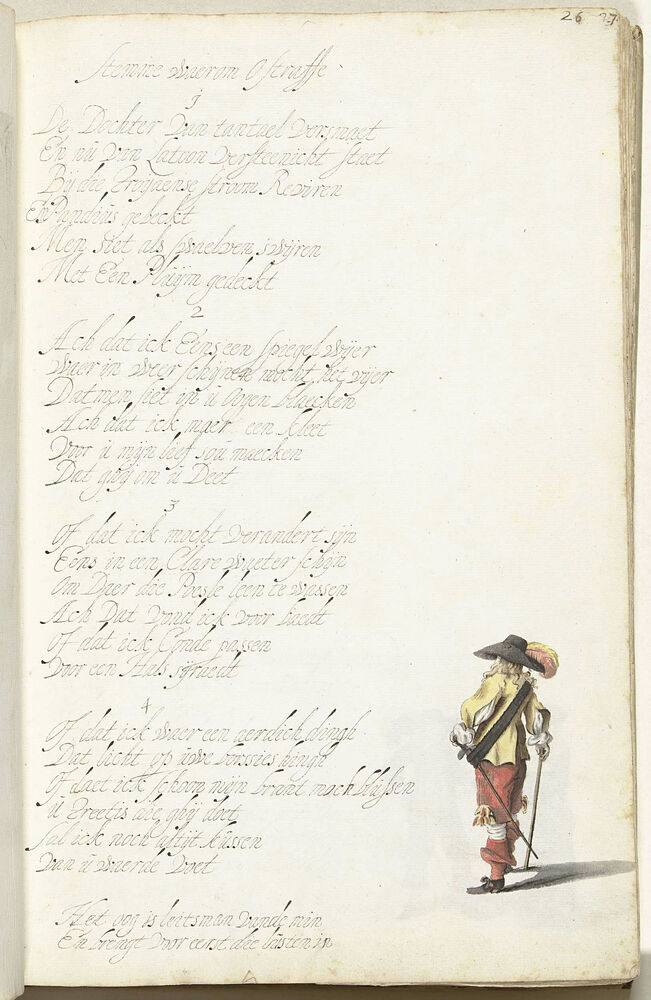 26 27
Stemme waerom Ostraffe
1
De Dochter Van tantael versmaet
En nu Van Latoon versteenicht staet
Bij die Troijaense stroom Reviren
En Pandius gebeckt
Men siet als swaelven swijren
Met Een Pluijm gedeckt
2
Ach dat ick Eens een spiegel wijer
Waer in weer schijnen mocht het vijer
Datmen siet in u Ogen blaecken
Ach dat ick maer een kleet
Voor u mijn lief sou maecken
Dat ghij om u Deet
3
Of dat ick mocht verandert sijn
Eens in een Clare waeter schijn
Om Daer die Poesle leen te wassen
Ach Dat vond ick voor baedt
Of dat ick Conde passen
Voor een Hals syraedt
4
Of dat ick waer een aerdich dingh
Dat licht op uwe borssies hengh
Of daet ick schoon mijn brant mach blussen
u treetjs die ghij doet
Sal ick noch altijt kussen
Van u waerde Voet
Het oog is leitsman vande min
En brengt voor eerst die lusten in